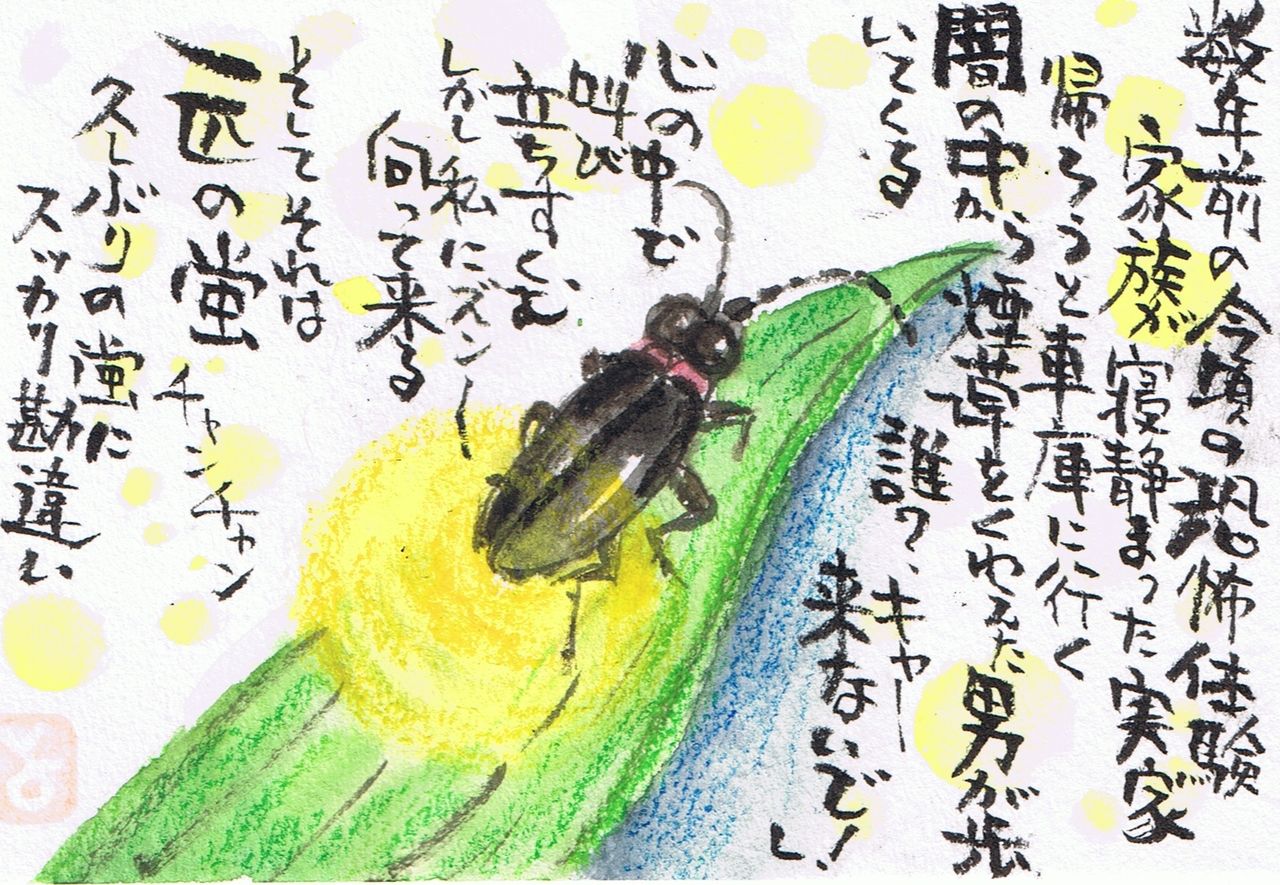 数年前の今頃の恐怖体験
家族が寝静まった実家
帰ろうと車庫に行く
闇の中から煙草をくわえた男が歩
いてくる
誰?、キャー
来ないで!
し!
心の中で
叫び
立ちすくむ
しかし私にズンー
向って来る
そしてそれは
一匹の蛍
チャンチャン
久しぶりの蛍に
スッカリ勘違い